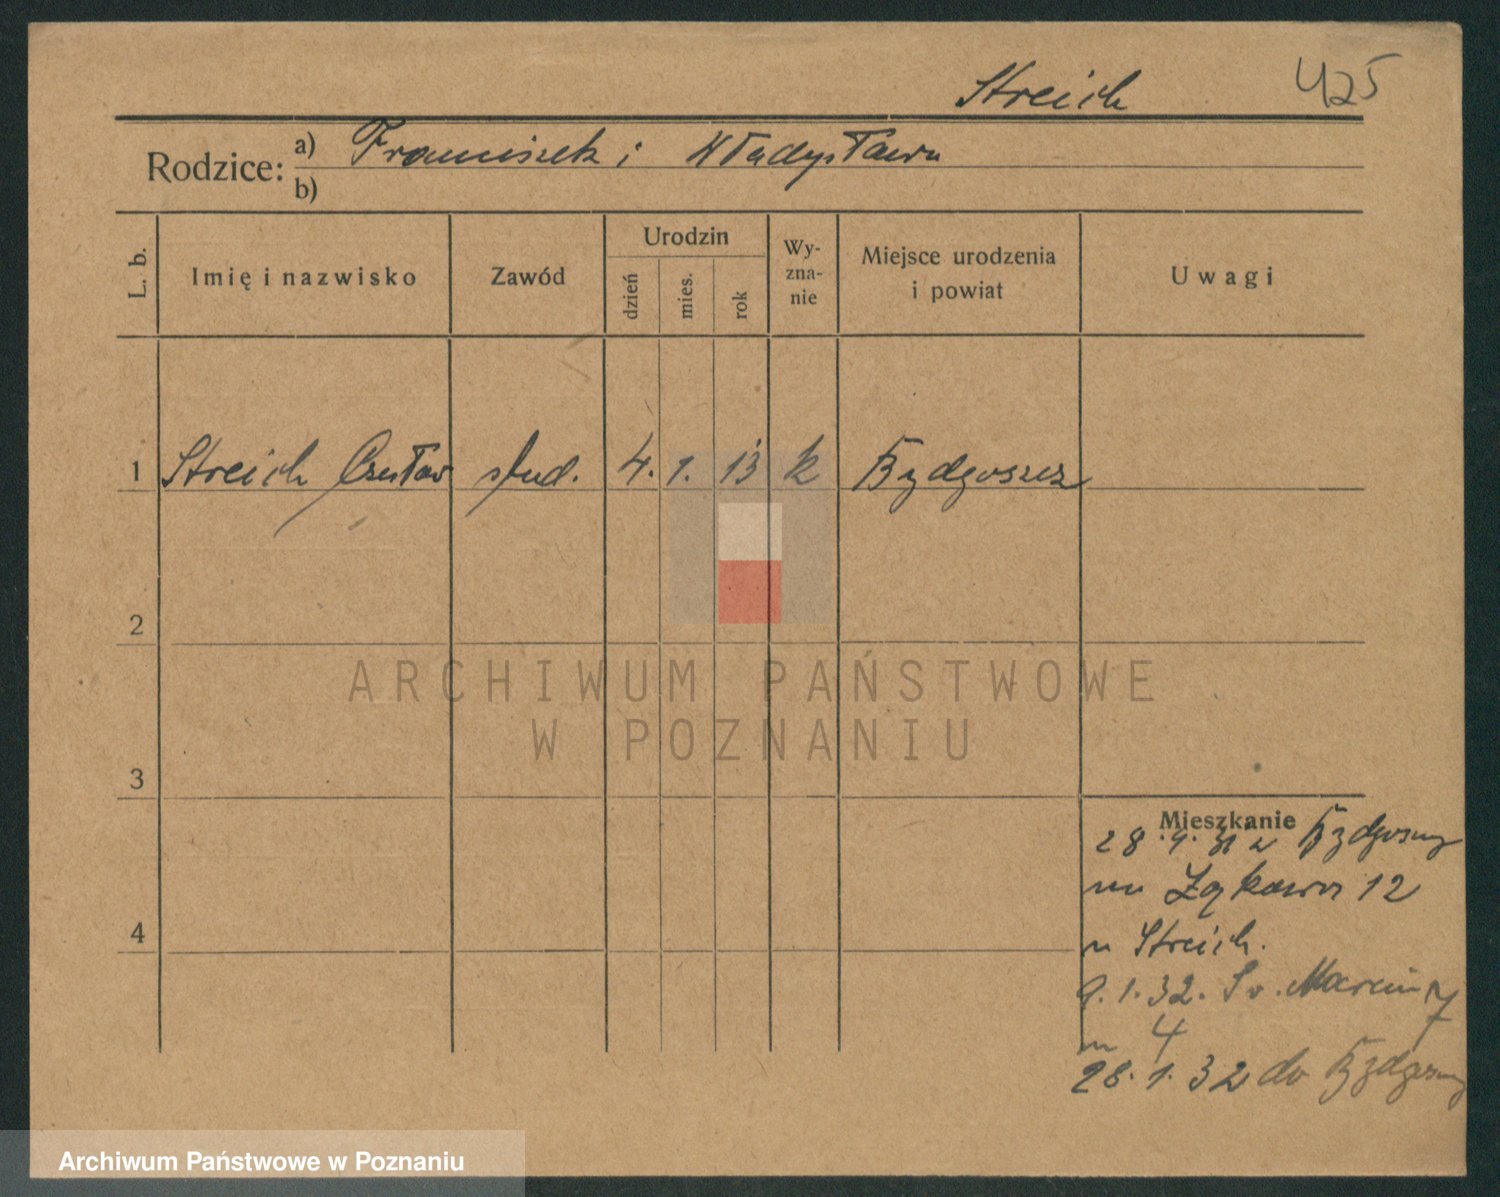 Streich 425
Rodzice: a) Franciszek i Władysława
b)
L. b. Imię i nazwisko Zawód Urodzin dzień mies. rok Wy-zna-nie Miejsce urodzenia i powiat Uwagi
1 Streich Czesław stud. 4. 1. 13 k Bydgoszcz
2
ARCHIWUM PAŃSTWOWE
W POZNANIU
3
Mieszkanie
28.9.31 z Bydgoszczy
12
4
u Streich.
9.1.32. Św. Marcin 7
m 4
28.1.32 do Bydgoszczy
Archiwum Państwowe w Poznaniu